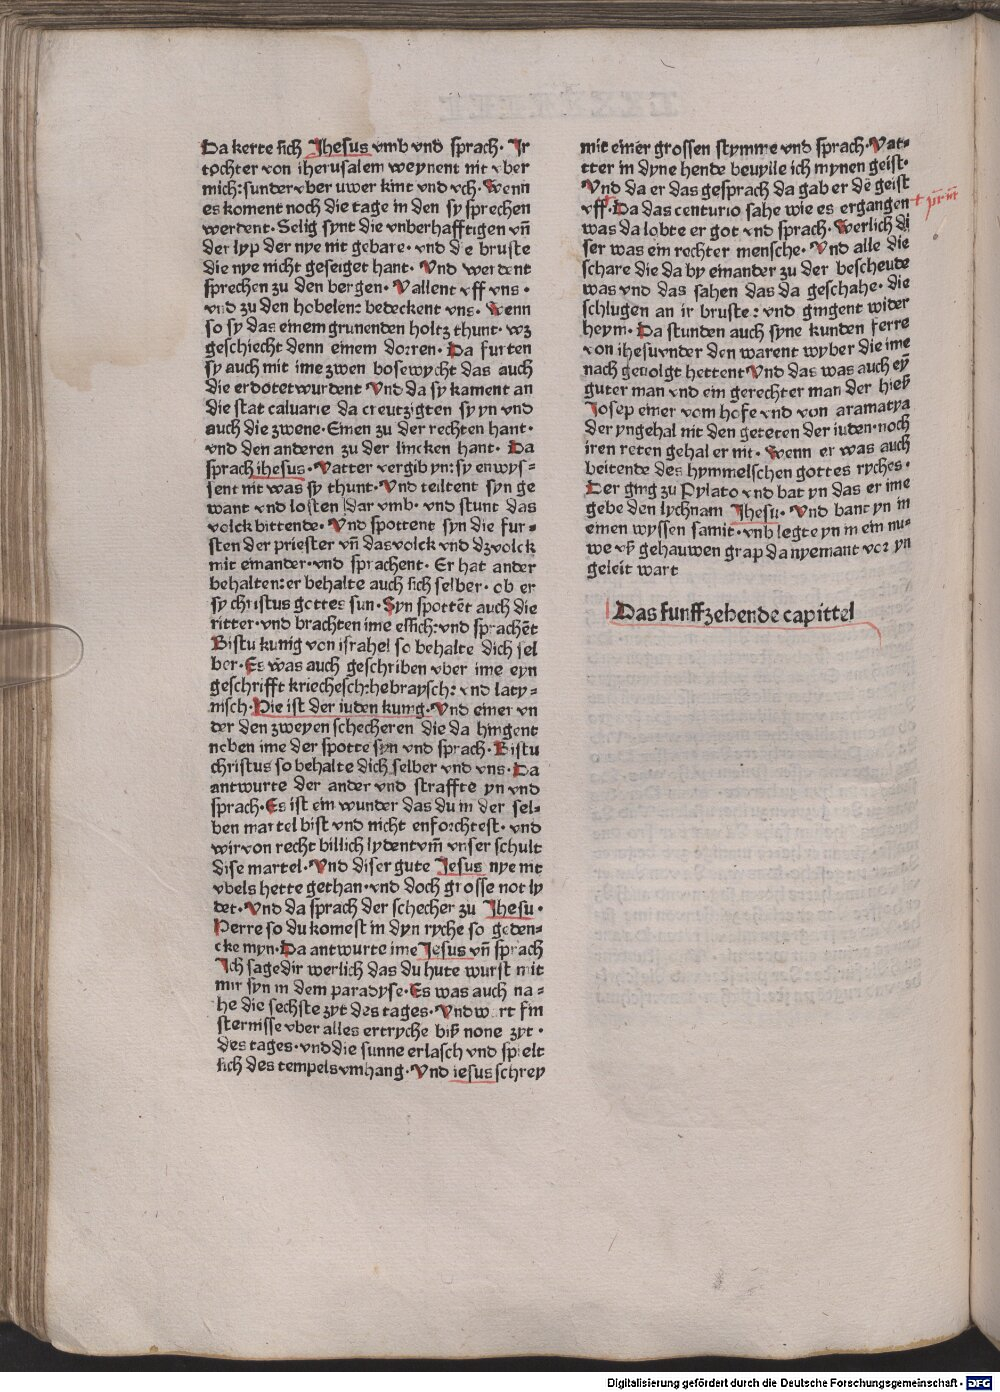 Da kerte sich Jhesus vmb vnd sprach· Ir
tochter von iherusalem weynent nit vber
mich: sunder vber uwer kint vnd vch· Wenn
es koment noch die tage in den sy sprechen
werdent· Selig synt die vnberhafftigen vn̄
der lyp der nye nit gebare· vnd die bruste
die nye nicht geseiget hant· Vnd werdent
sprechen zu den bergen· Vallent vff vns·
vnd zu den hobelen: bedeckent vns· Wenn
so sy das einem grunenden holtz thunt· wz
geschiecht denn einem dorren· Da furten
sy auch mit ime zwen bosewycht das auch
die erdotet wurdent Vnd da sy kament an
die stat caluarie da creutzigten sy yn vnd
auch die zwene· Einen zu der rechten hant·
vnd den anderen zu der lincken hant· Da
sprach ihesus· Vatter vergib yn: sy enwys-
sent nit was sy thunt· Vnd teiltent syn ge
want vnd losten dar vmb· vnd stunt das
volck bittende· Vnd spottent syn die fur-
sten der priester vn̄ das volck vnd dz volck
mit einander· vnd sprachent· Er hat ander
behalten: er behalte auch sich selber· ob er
sy christus gottes sun· Syn spottēt auch die
ritter· vnd brachten ime essich: vnd sprachēt
Bistu kunig von israhel so behalte dich sel
ber· Es was auch geschriben vber ime eyn
geschrifft kriechesch: hebraysch: vnd laty-
nisch· Die ist der iuden kunig· Vnd einer vn
der den zweyen schecheren die da hingent
neben ime der spotte syn vnd sprach· Bistu
christus so behalte dich selber vnd vns· Da
antwurte der ander vnd straffte yn vnd
sprach· Es ist ein wunder das du in der sel-
ben martel bist vnd nicht enforchtest· vnd
wir von recht billich lydent vm̄ vnser schult
dise martel· Vnd diser gute Jesus nye nit
vbels hette gethan· vnd doch grosse not ly
det· Vnd da sprach der schecher zu Jhesu·
Herre so du komest in dyn ryche so geden-
cke myn· Da antwurte ime Jesus vn̄ sprach
Ich sage dir werlich das du hute wurst mit
mir syn in dem paradyse· Es was auch na-
he die sechste zyt des tages· Vnd wart fin
sternisse vber alles ertryche biß none zyt·
des tages· vnd die sunne erlasch vnd spielt
sich des tempels vmhang· Vnd iesus schrey
mit einer grossen stymme vnd sprach· Vat-
tter in dyne hende beuylle ich mynen geist·
Vnd da er das gesprach da gab er dē geist
vff· Da das centurio sahe wie es ergangen
was da lobte er got vnd sprach· Werlich di
ser was ein rechter mensche· Vnd alle die
schare die da by einander zu der bescheude
was vnd das sahen das da geschahe· die
schlugen an ir bruste: vnd gingent wider
heym· Da stunden auch syne kunden ferre
von ihesu vnder den warent wyber die ime
nach geuolgt hettent Vnd das was auch eyn̄
guter man vnd ein gerechter man der hieß
Josep einer vom hofe vnd von aramatya
der yn gehal nit den geteten der iuden· noch
iren reten gehal er nit· Wenn er was auch
beitende des hymmelschen gottes ryches·
Der ging zu Pylato vnd bat yn das er ime
gebe den lychnam Jhesu· Vnd bant yn in
einen wyssen samit· vnb legte yn in ein nu-
we vß gehauwen grap da nyemant vor yn
geleit wart
Das funffzehende capittel
Digitalisierung gefördert durch die Deutsche Forschungsgemeinschaft · DFG